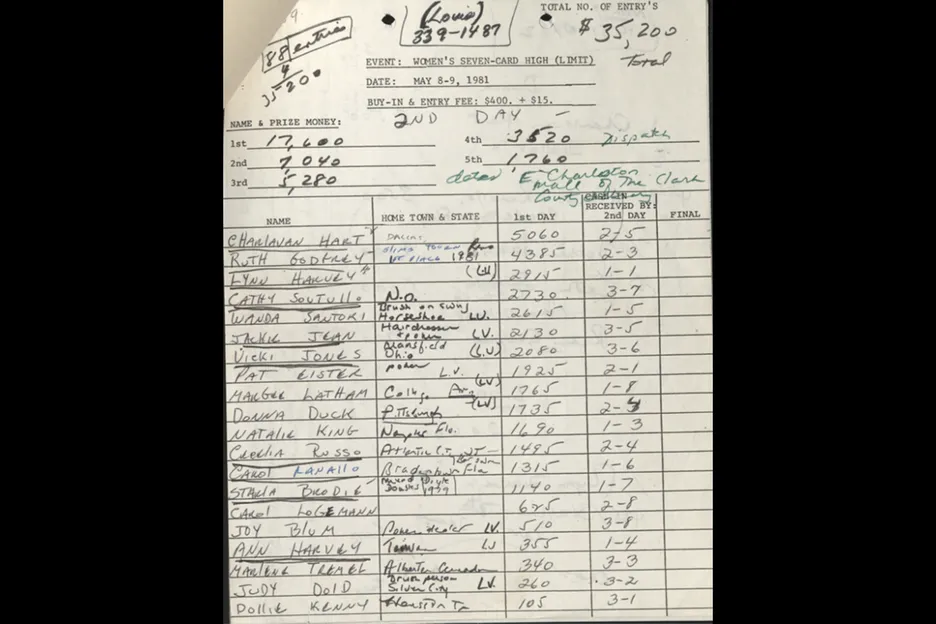 9
88 entries
4
35200
(Louis)
339-1487
TOTAL NO. OF ENTRY'S
$35,200
Total
EVENT: WOMEN'S SEVEN-CARD HIGH (LIMIT)
DATE: MAY 8-9, 1981
BUY-IN & ENTRY FEE: $400. + $15.
2ND DAY -
NAME & PRIZE MONEY:
1st 17,600
2nd 7,040
3rd 5,280
4th 3520 Dispatch
5th 1760
E Charleston
Mall of The Clark
County
NAME HOME TOWN & STATE 1st DAY RECEIVED BY: 2nd DAY FINAL
HART 5060 2-5
RUTH GODFREY 1st PLACE 1981 Reno 4385 2-3
LYNN HARVEY (LV) 2915 1-1
CATHY SOUTULLO N.O. 2730 3-7
WANDA SANTORI Brush on swing Horseshoe LV. 2615 1-5
JACKIE JEAN Hairdresser LV. 2130 3-5
VICKI JONES Mansfield Ohio (LV) 2080 3-6
PAT LISTER L.V. 1925 2-1
MARGEE LATHAM (LV) 1765 1-8
DONNA DUCK Pittsburgh (LV) 1735
NATALIE KING Naples Flo. 1690 1-3
RUSSO Atlantic C. 1495 2-4
CAROL RANALLO Bradenton Fla 1315 1-6
STARLA BRODIE 1979 1140 1-7
CAROL LOGEMANN 625 2-8
JOY BLUM Poker dealer LV. 510 3-8
ANN HARVEY Taiwan LV 355 1-4
MARLENE TREMEL Alberta Canada 340 3-3
JUDY DOLD Brush person Silver City LV. 260 3-2
DOLLIE KENNY Houston Tx 105 3-1